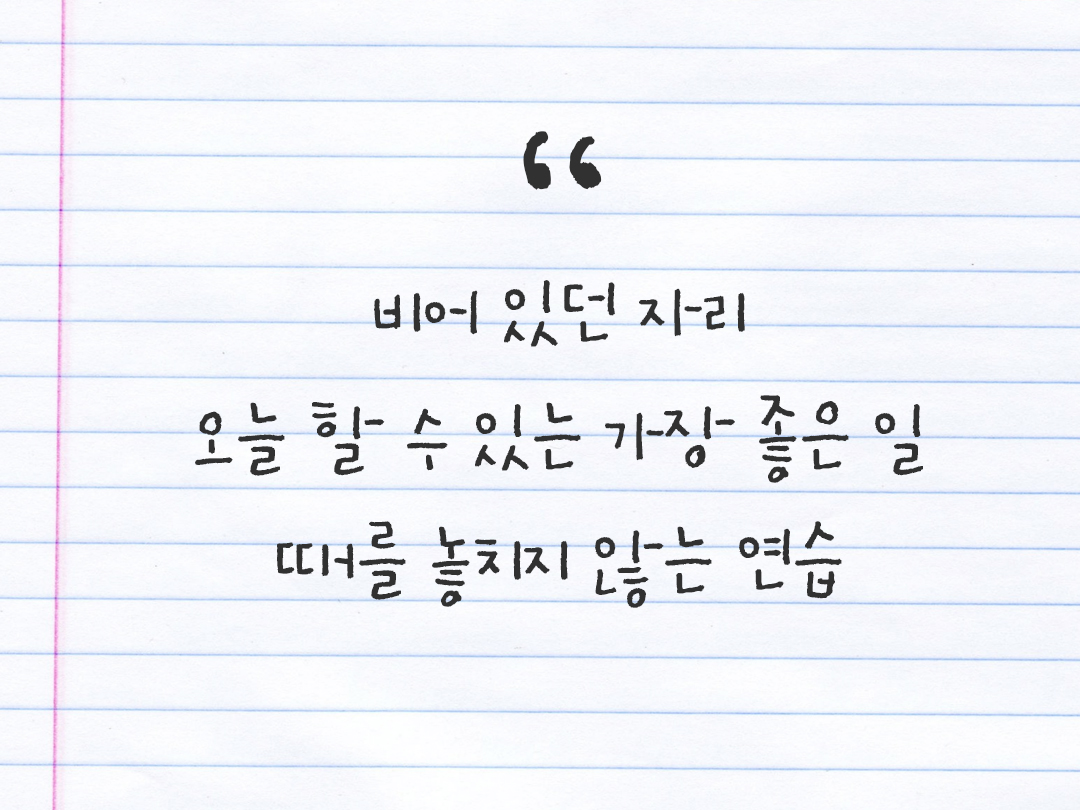 “
비어 있던 자리
오늘 할 수 있는 가장 좋은 일
때를 놓치지 않는 연습